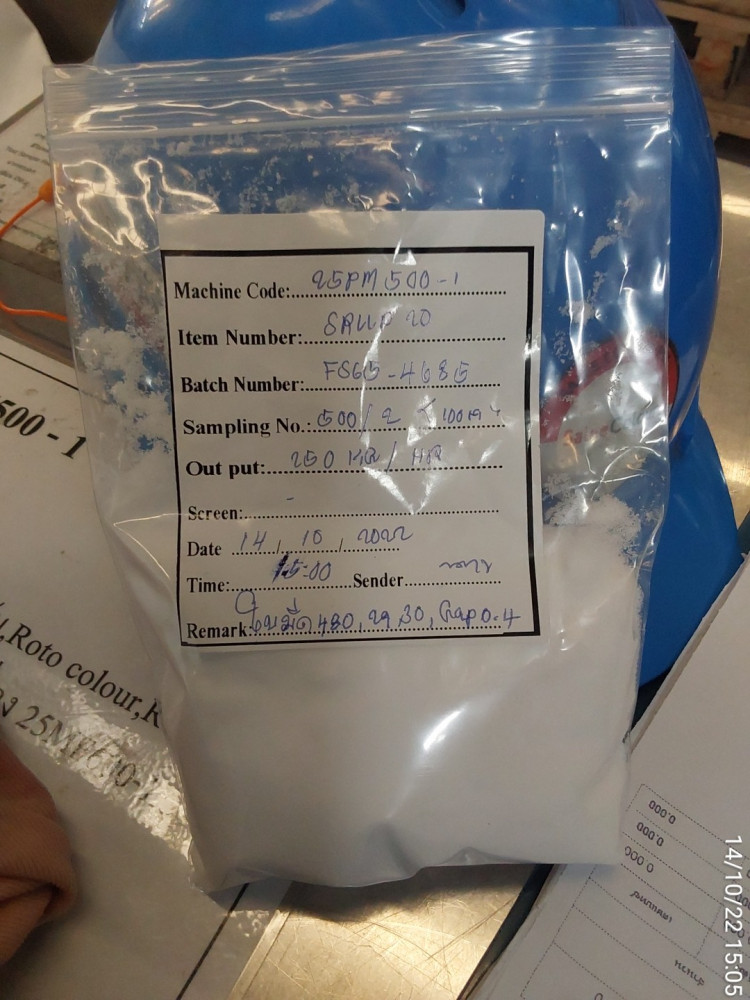 Machine Code: 25PM 500-1
Item Number:
Batch Number: FS65-4685
Sampling No.: 500/2
Out put: 250 KG/HR
Screen: -
Date 14, 10, 2022
Time: 15:00 Sender
Remark: ใบมีด 480, 30, Gap 0.4
500-1
,Roto colour,
0.000
0.000
0.000
14/10/22 15:05